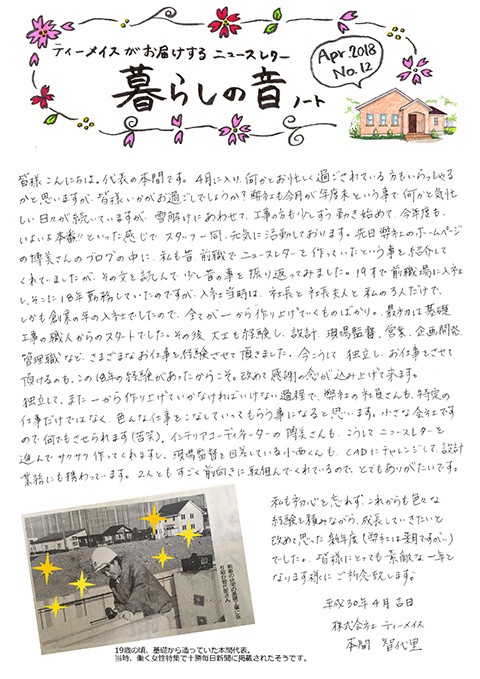 ティーメイスがお届けする ニュースレター
Apr.2018
No.12
暮らしの音ノート
皆様こんにちは。代表の本間です。4月に入り、何かとお忙しく過ごされている方もいらっしゃる
かと思いますが、皆様いかがお過ごしでしょうか?弊社も今月が年度末という事で何かと気忙
しい日々が続いていますが、雪解けにあわせて、工事の方も少しずつ動き始めて、今年度も、
いよいよ本番!!といった感じで、スタッフ一同、元気に活動しております。先日弊社のホームページ
の博美さんのブログの中に、私も昔前職でニュースレターを作っていたという事を紹介して
くれていましたが、その文を読んで、少し昔の事を振り返ってみました。19才で前職場に入社
し、そこに18年勤務していたのですが、入社当時は、社長と社長夫人と私の3人だけで、
しかも創業の年の入社でしたので、全てが一から作り上げていくものばかり。最初は基礎
工事の職人からのスタートでした。その後 大工も経験し、設計、現場監督、営業、企画開発、
管理職など、さまざまなお仕事を経験させて頂きました。今こうして 独立し、お仕事をさせて
頂けるのも、この18年の経験があったからこそ。改めて感謝の念が込み上げて来ます。
独立して、また一から作り上げていかなければいけない過程で、弊社の社員さんも、特定の
仕事だけではなく、色んな仕事をこなしていってもらう事になると思います。小さな会社です
ので何でもさせられます(苦笑)。インテリアコーディネーターの博美さんも、こうしてニュースレターを
進んでサクサク作ってくれますし、現場監督を目差している小西くんも、CADにチャレンジして、設計
業務にも携わっています。2人ともすごく前向きに取組んでくれているので、とてもありがたいです。
私も初心を忘れず、これからも色々な
経験を積みながら、成長していきたいと
改めて思った新年度(弊社は来月ですが…)
でした。皆様にとっても素敵な一年と
なります様に ご祈念致します。
平成30年4月吉日
株式会社 ティーメイス
本間 智代里
19歳の頃、基礎から造っていた本間代表。
当時、働く女性特集で十勝毎日新聞に掲載されたそうです。